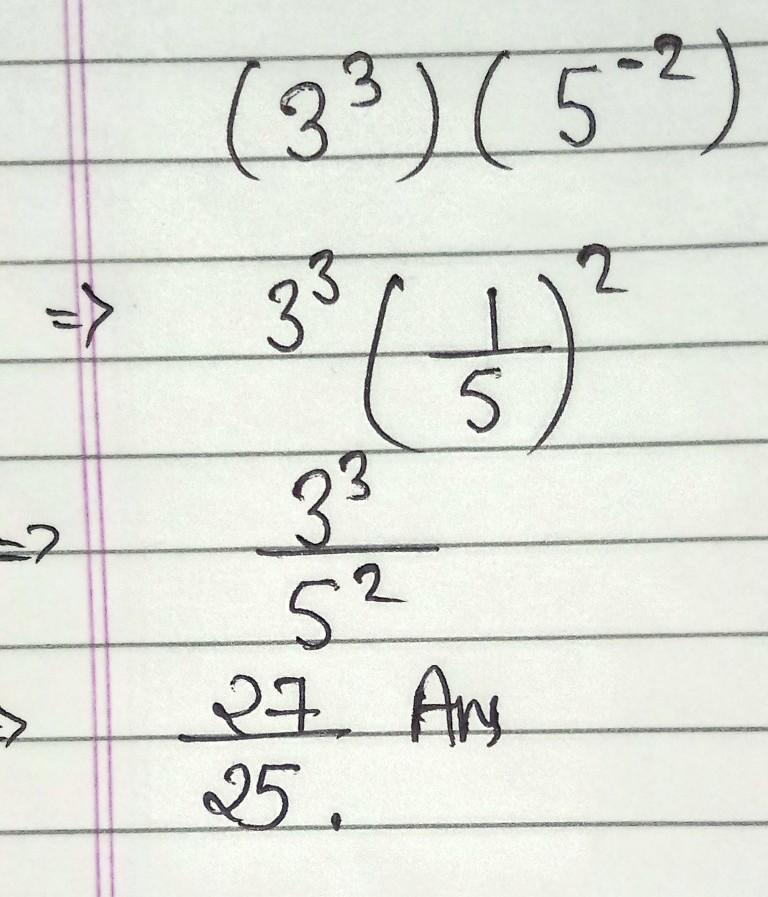 (3³)(5⁻²)
=> 3³(1/5)²
=> 3³/5²
=> 27/25. Ans